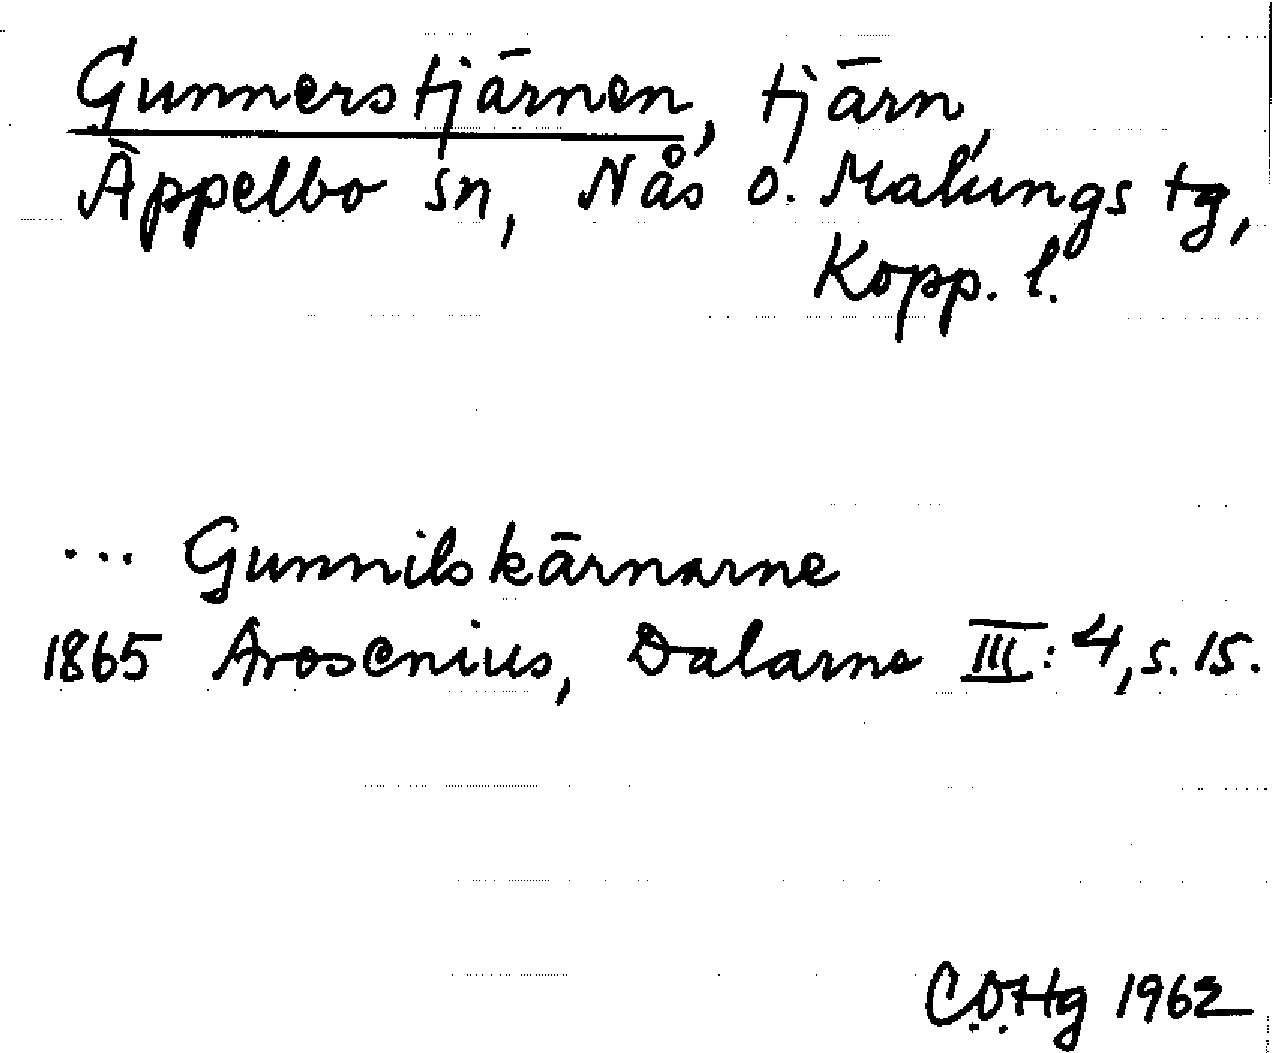 Gunnerstjärnen, tjärn,
Äppelbo sn, Nås o. Malungs tg,
Kopp. l.
... Gunnilskärnarne
1865 Arosenius, Dalarne III: 4, s. 15.
C.O.Hg 1962